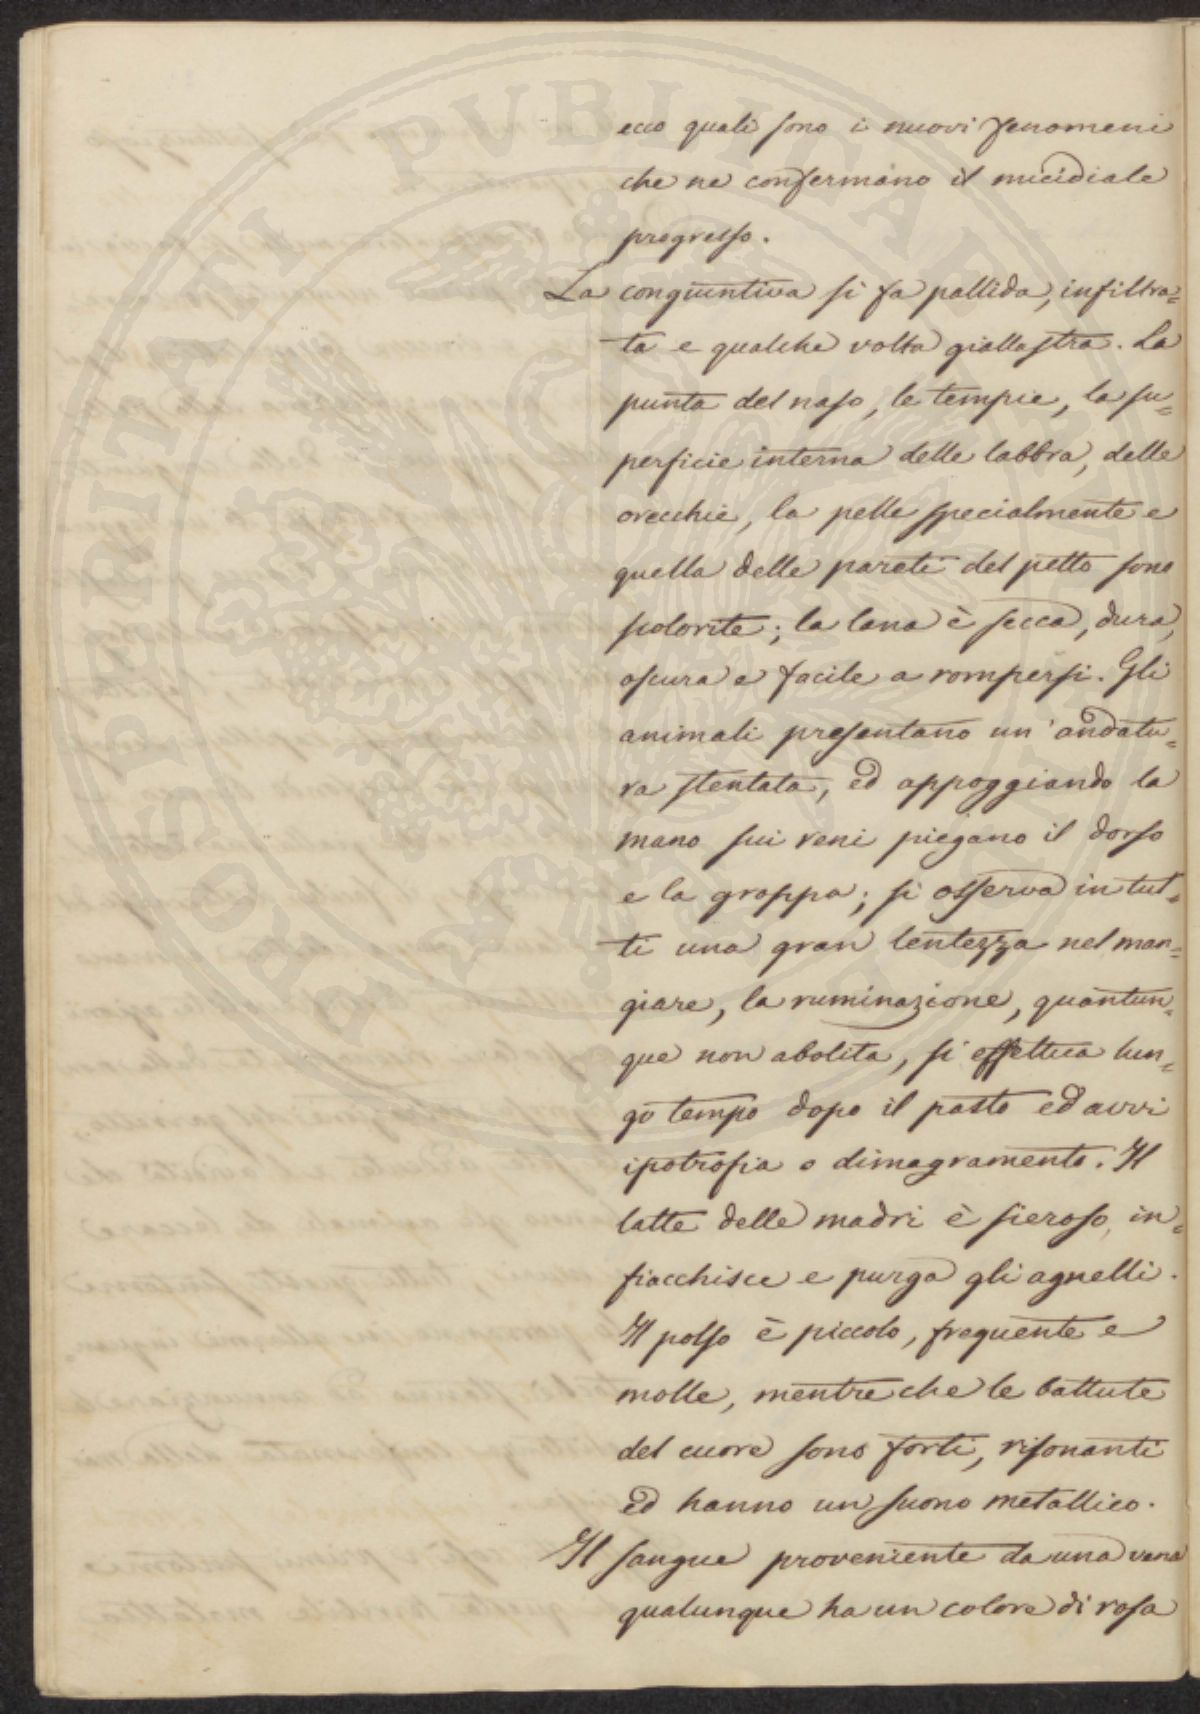 ecco quali sono i nuovi fenomeni
che ne confermano il micidiale
progresso.
La congiuntiva si fa pallida, infiltra=
ta e qualche volta giallastra. La
punta del naso, le tempie, la su=
perficie interna delle labbra, delle
orecchie, la pelle specialmente e
quella delle pareti del petto sono
scolorite; la lana è secca, dura,
oscura e facile a rompersi. Gli
animali presentano un'andatu=
ra stentata, ed appoggiando la
mano sui reni piegano il dorso
e la groppa; si osserva in tut=
ti una gran lentezza nel man=
giare, la ruminazione, quantun=
que non abolita, si effettua lun=
go tempo dopo il pasto ed avvi
ipotrofia o dimagramento. Il
latte delle madri è sieroso, in=
fiacchisce e purga gli agnelli.
Il polso è piccolo, frequente e
molle, mentre che le battute
del cuore sono forti, risonanti
ed hanno un suono metallico.
Il sangue proveniente da una vena
qualunque ha un colore di rosa
PROSPERITATI PUBLICAE